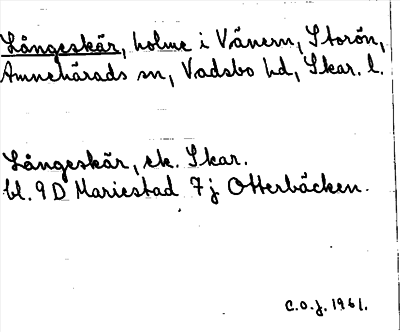 Långeskär, holme i Vänern, Storön,
Amnehärads sn, Vadsbo hd, Skar. l.
Långeskär, ek. Skar.
bl. 9 D Mariestad 7 j Otterbäcken.
C.O.J. 1961.